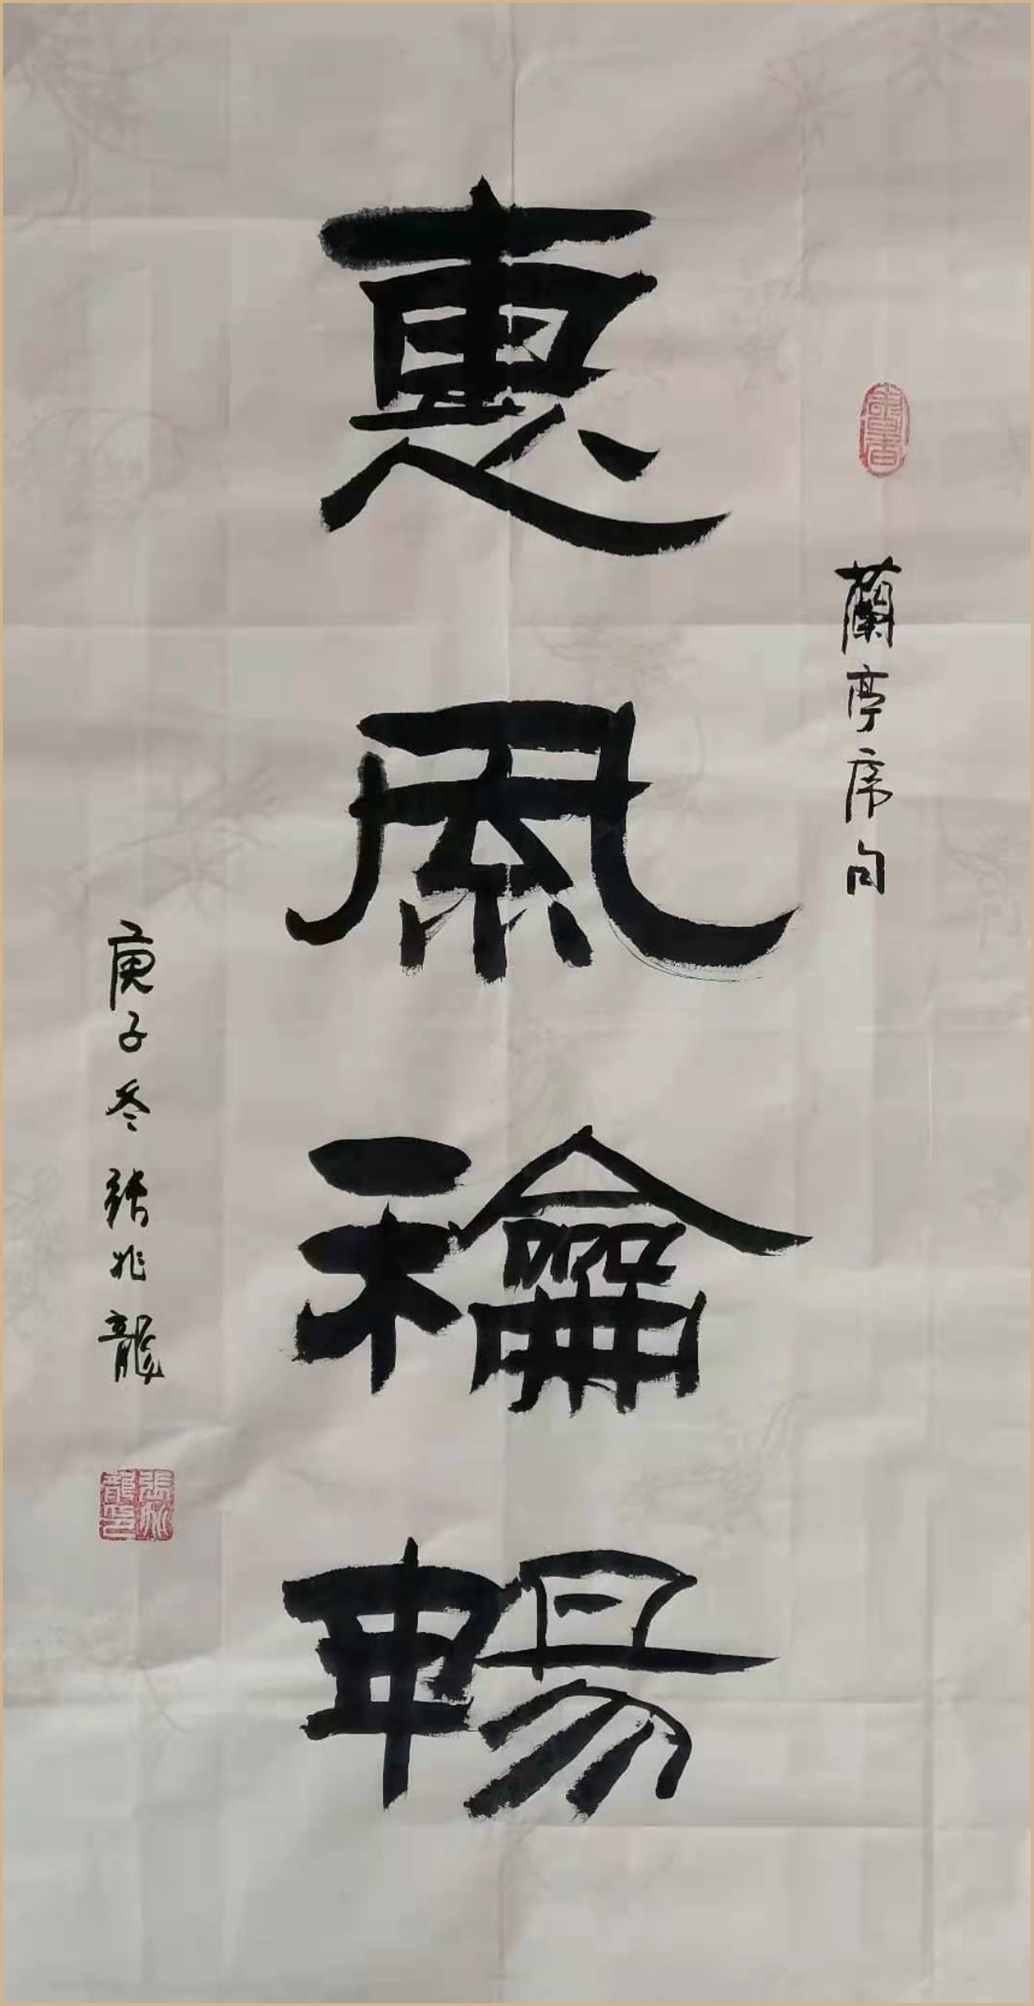 書香
蘭亭序句
惠風龢暢
庚子冬張兆龍
張兆
龍印